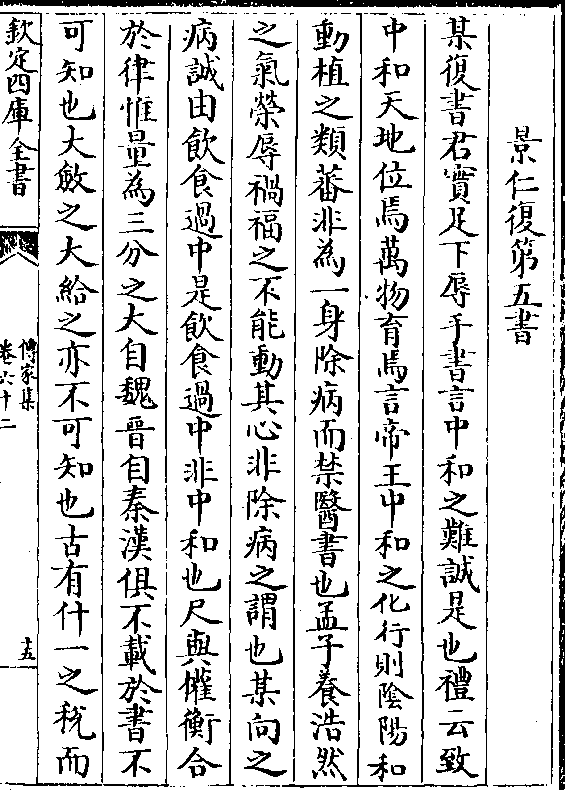 景仁復第五書
某復書君實足下辱手書言中和之難誠是也禮云致
中和天地位焉萬物育焉言帝王中和之化行則陰陽和
動植之類蕃非為一身除病而禁醫書也孟子養浩然
之氣榮辱禍福之不能動其心非除病之謂也某向之
病誠由飲食過中是飲食過中非中和也尺與權衡合
於律惟量為三分之大自魏晉自秦漢俱不載於書不
可知也大斂之大給之亦不可知也古有什一之稅而
欽定四庫全書
傳家集
卷六十二
十五